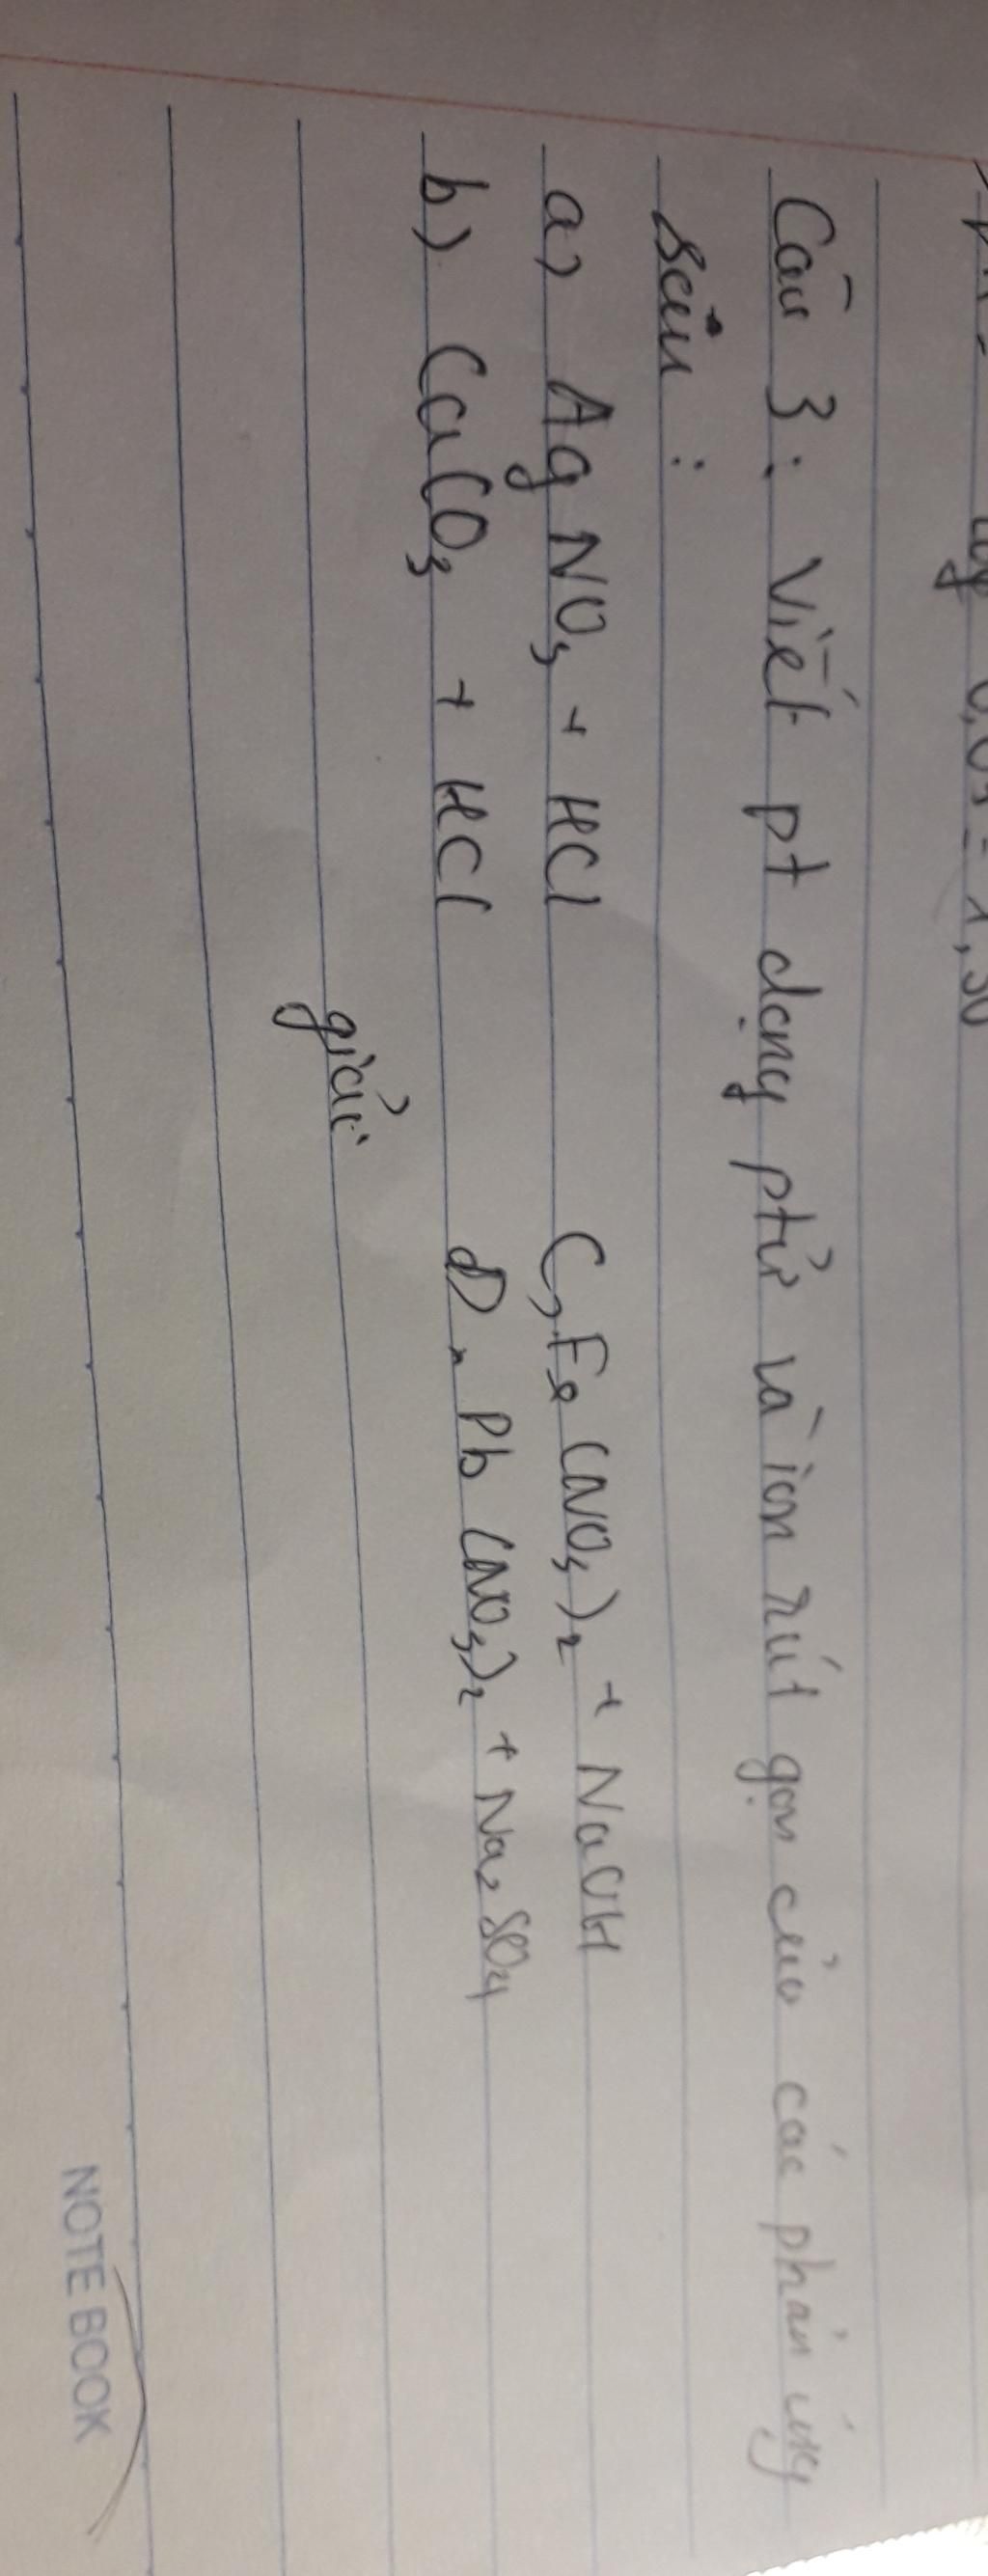 Câu 3: Viết pt dạng ptử và ion rút gọn của các phản ứng
sau:
a) AgNO3 + HCl C, Fe(NO3)2 + NaOH
b) CaCO3 + HCl d) Pb(NO3)2 + Na2SO4
giải
NOTE BOOK